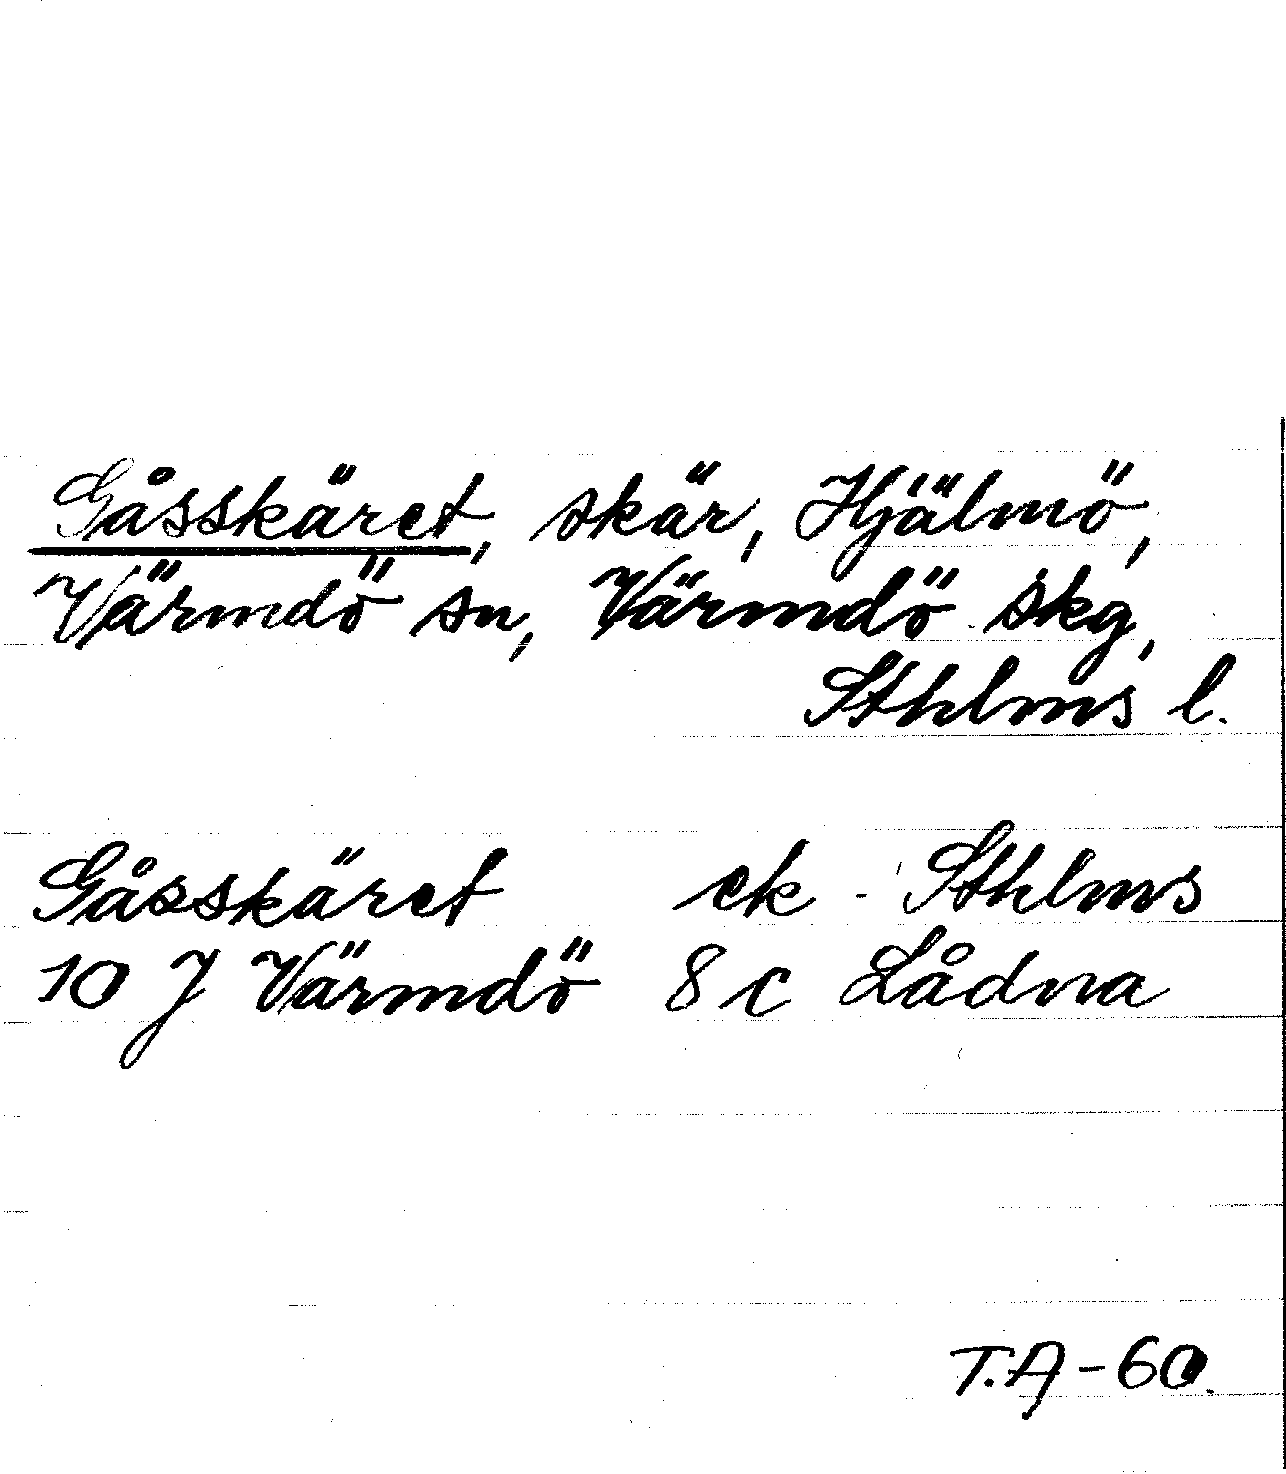 Gåsskäret, skär, Hjälmö,
Värmdö sn, Värmdö skg,
Sthlms l.
Gåsskäret ek - Sthlms
10 J Värmdö 8 c Lådna
T.A-60.